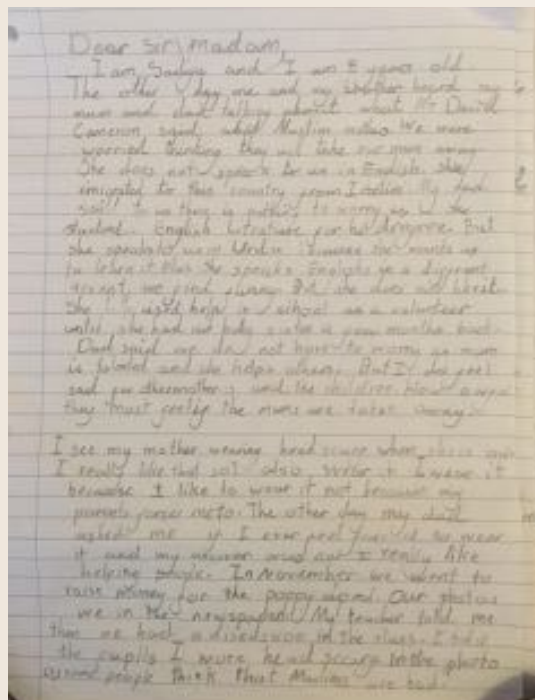 Dear Sir/Madam,
I am and I am 8 years old.
The other day me and my brother heard my
mum and dad talking about what Mr David
Cameron said about Muslim We were
worried thinking they will take our mum away
She does not speak to us in English. She
emigrated to this country from My dad
said to us there is nothing to worry as she
studied English Literature for her degree. But
she speaks to us in because she wants us
to learn it. Plus she speaks English in a different
accent, we find funny. But she does not
She used help in school as a volunteer
until she had our baby sister a few months back.
Dad said we do not have to worry as mum
is and she helps others. But I do feel
sad for the mothers and the children. How
they must feel if the mums are taken away.
I see my mother wearing head scarf when
I really like that so I also wear it. I wear it
because I like to wear it not because my
parents force me to. The other day my dad
asked me if I ever feel forced to wear
it and my answer was no! I really like
helping people. In November we went to
raise money for the poppy Our photos
were in the newspaper! My teacher told me
that we had a discussion in the class. I told
the pupils I wore head scarf in the photo
as some people think that Muslims are bad